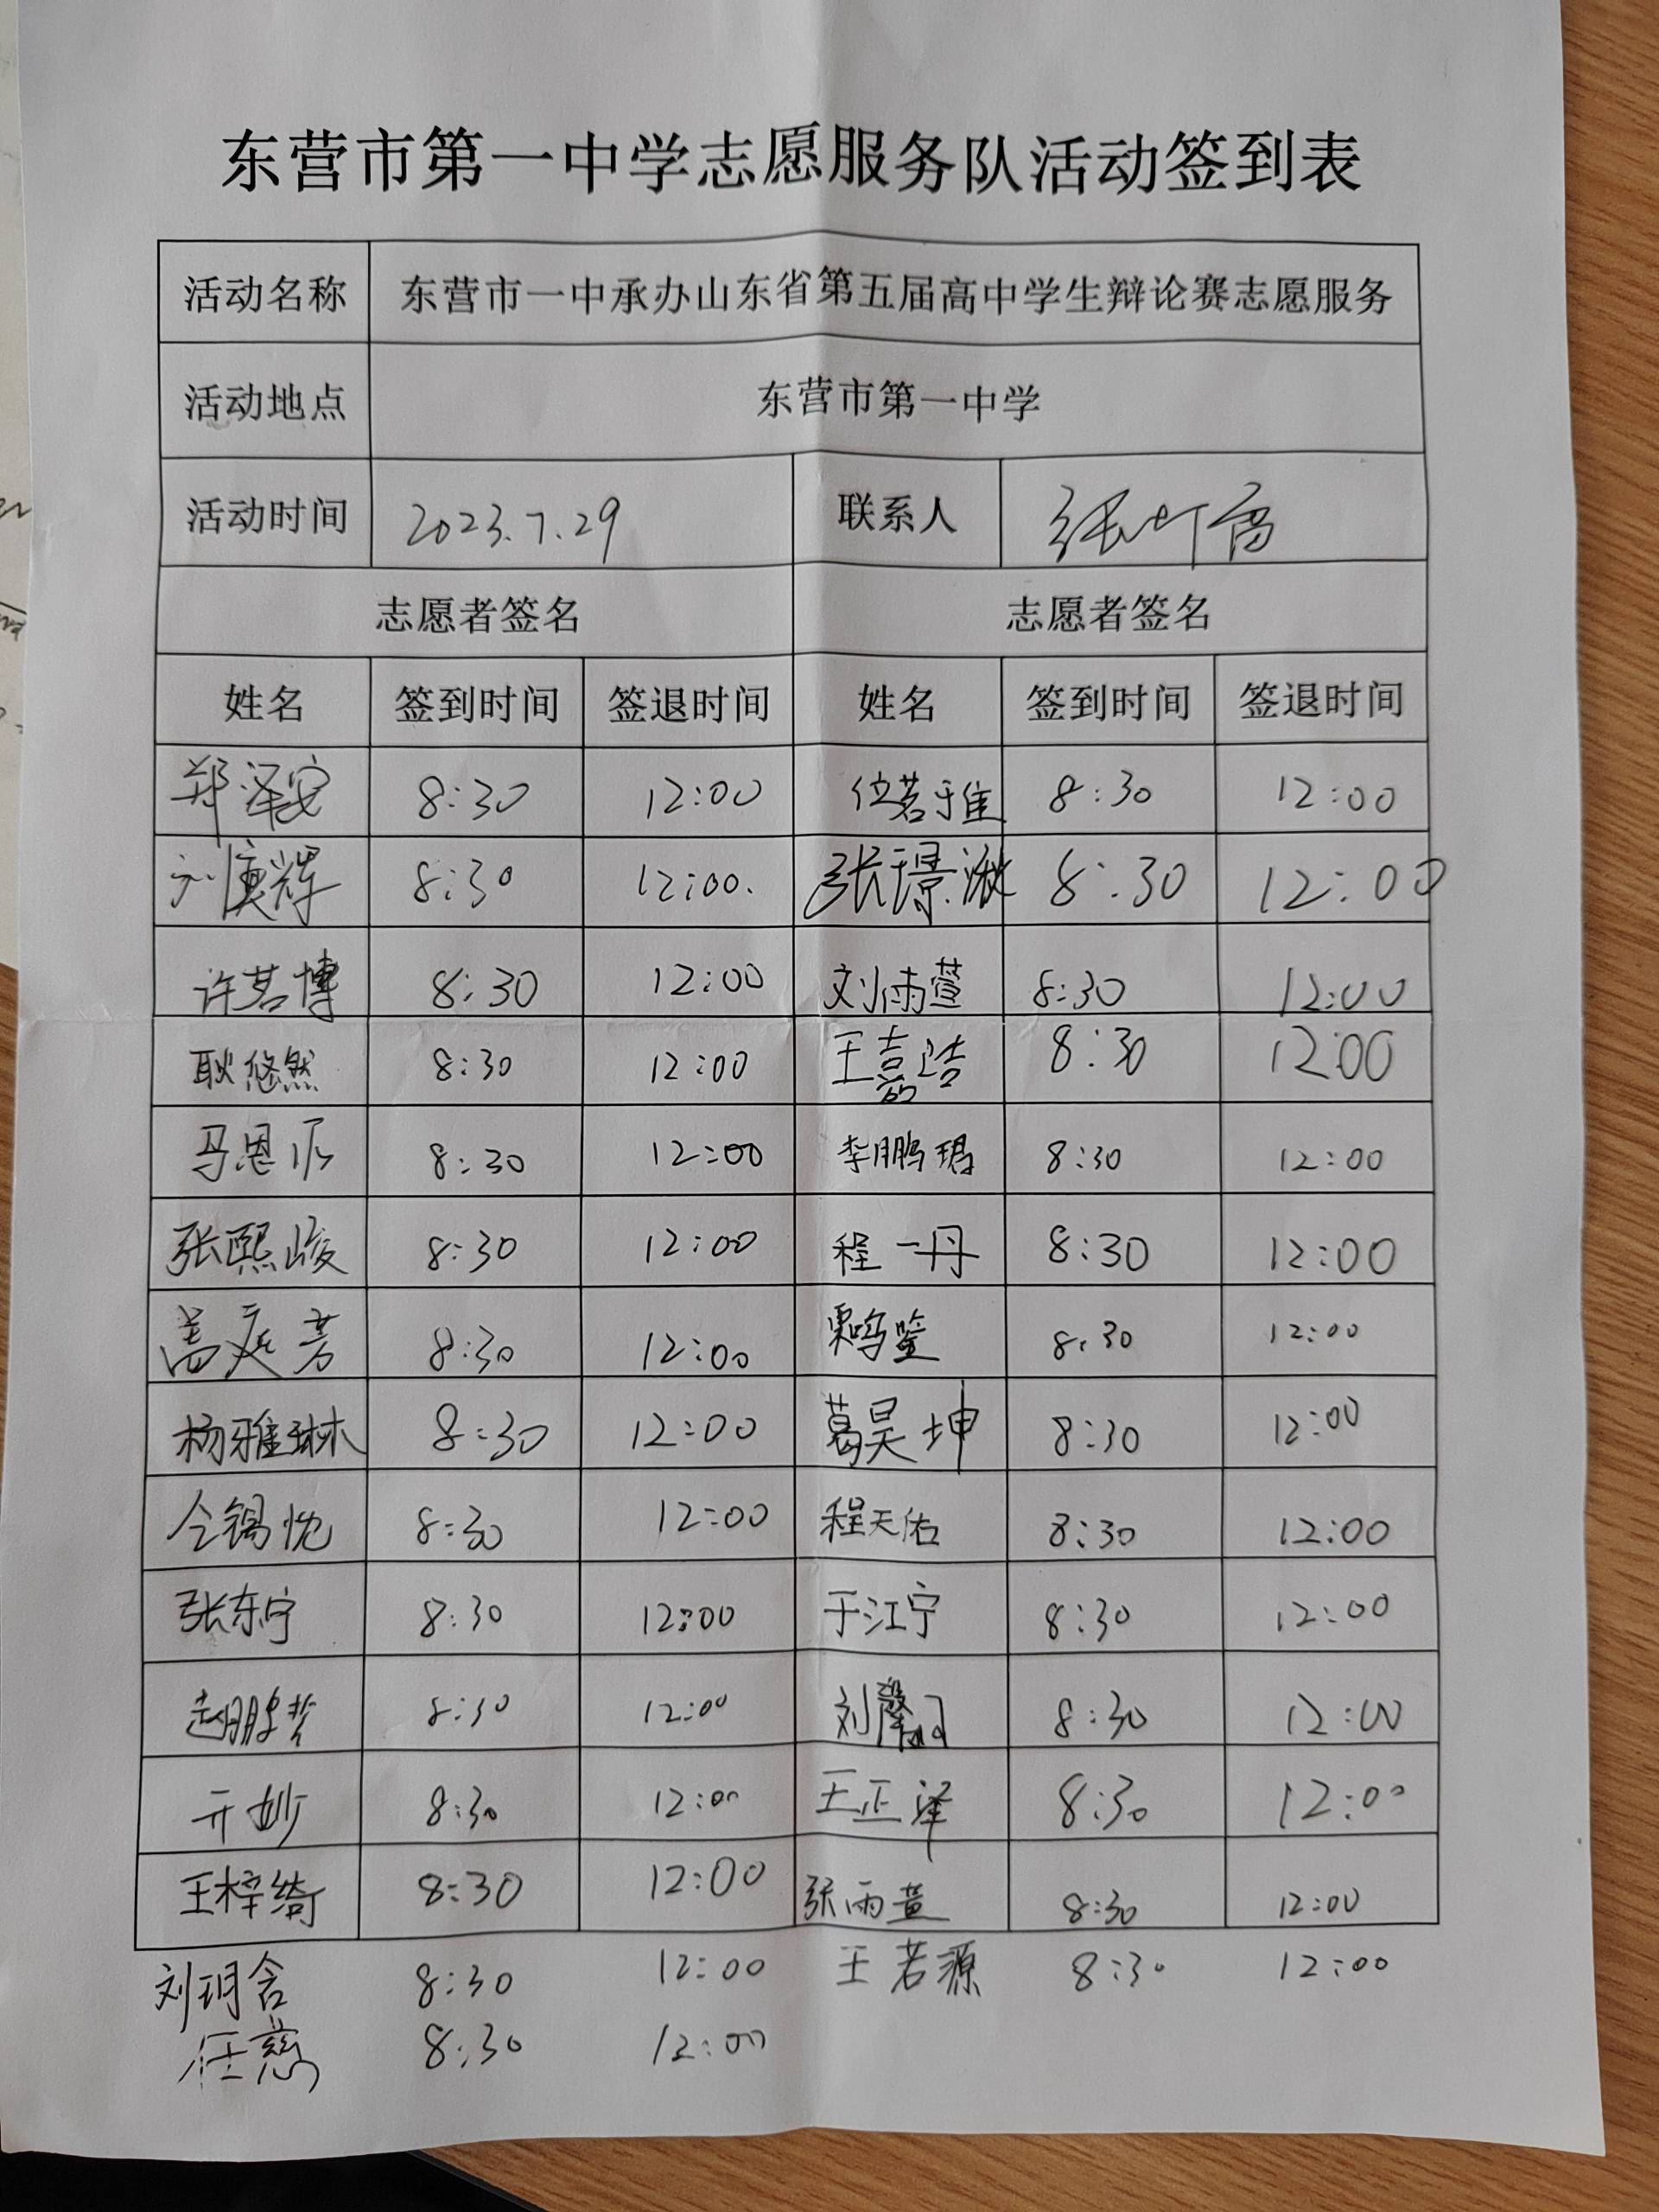 东营市第一中学志愿服务队活动签到表
活动名称 东营市一中承办山东省第五届高中学生辩论赛志愿服务
活动地点 东营市第一中学
活动时间 2023.7.29 联系人
志愿者签名 志愿者签名
姓名 签到时间 签退时间 姓名 签到时间 签退时间
郑泽安 8:30 12:00 位茗雅 8:30 12:00
8:30 12:00. 张璟溦 8:30 12:00
许茗博 8:30 12:00 刘雨萱 8:30 12:00
耿悠然 8:30 12:00 王嘉洁 8:30 12:00
8:30 12:00 李鹏瑶 8:30 12:00
张熙峻 8:30 12:00 程一丹 8:30 12:00
盖庭芳 8:30 12:00 栗鸣鉴 8:30 12:00
杨雅琳 8:30 12:00 葛昊坤 8:30 12:00
仝锡忱 8:30 12:00 程天佑 8:30 12:00
张东宁 8:30 12:00 于江宁 8:30 12:00
赵鹏哲 8:30 12:00 8:30 12:00
亓妙 8:30 12:00 王正泽 8:30 12:00
王梓绮 8:30 12:00 张雨萱 8:30 12:00
刘玥含 8:30 12:00 王若源 8:30 12:00
任慈 8:30 12:00